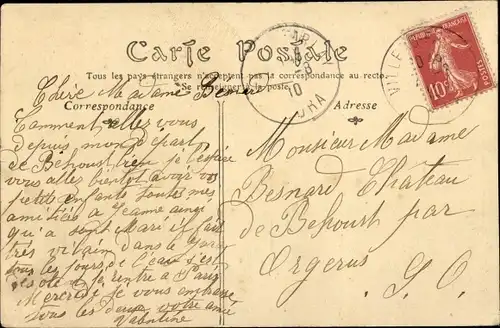 Carte Postale
Tous les pays étrangers n'acceptent pas la correspondance au recto.
Se renseigner à la poste.
Correspondance
Adresse
Chère Madame Besnard
Comment allez vous
depuis mon départ
de Behoust bien je l'espère
vous allez bientôt avoir vos
petits enfants toutes mes
amitiés à Jeanne ainsi
qu'a son Mari il fait
très vilain dans le
tous les jours de l'eau c'est
désolé je rentre à Paris
Mercredi je vous embrasse
tous les deux votre amie
Valentine
Monsieur Madame
Besnard Chateau
de Behoust par
Orgerus
S. O.
VILLE
10
POSTES
10